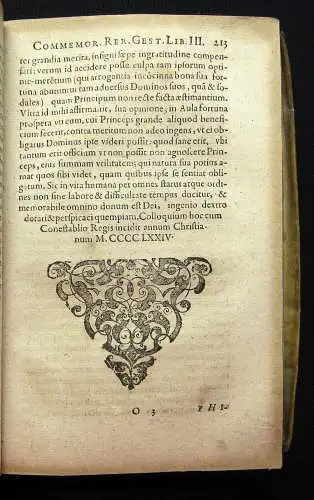 COMMEMOR. RER. GEST. LIB. III. 213
ter grandia merita, insigni sæpe ingratitudine compen-
sari: verum id accidere posse culpa tam ipsorum opti-
me-meretẽtium (qui arrogantia incõcinna bona sua for-
tuna abutuntur tam aduersus Dominos suos, quã & so-
dales) quam Principum non recte facta æstimantium.
Vsu id mihi affirmare, sua opinione, in Aula fortuna
prospera virum, cui Princeps grande aliquod benefi-
cium fecerit, contra meritum non adeo ingens, vt ei ob-
ligatus Dominus ipse videri possit: quod sane erit, vbi
tantum erit officium vt non possit non agnoscere Prin-
ceps, eius summam vtilitatem; qui natura sua potius a-
mat quos sibi debet, quam quibus ipse se sentiat obli-
gatum. Sic in vita humana per omnes status atque ordi-
nes non sine labore & difficultate tempus ducitur, &
memorabile omnino donum est Dei, ingenio dextro
dotari & perspicaci quempiam. Colloquium hoc cum
Conestablio Regis incidit annum Christia-
num M. CCCC. LXXIV.
O 3 PHI-